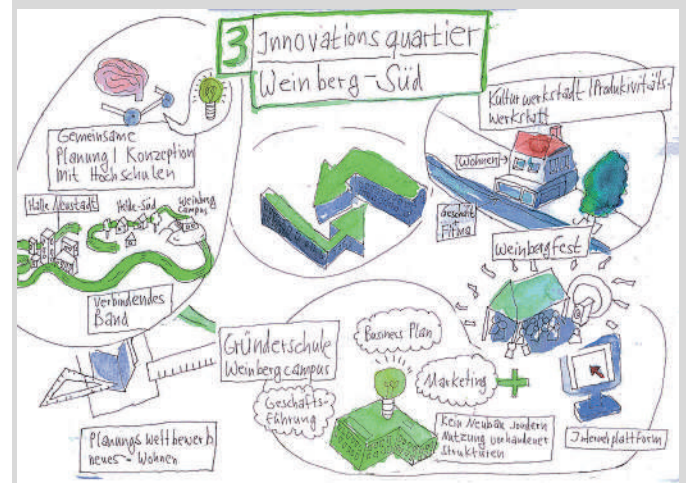 3
Innovationsquartier
Weinberg-Süd
Gemeinsame
Planung / Konzeption
mit Hochschulen
Halle Neustadt
Heide-Süd
Weinberg
Campus
Verbindendes
Band
Planungswettbewerb
neues - Wohnen
Kulturwerkstadt / Produktivitäts-
werkstatt
Wohnen
Geschäft
+
Firma
Weinbergfest
Gründerschule
Weinbergcampus
Business Plan
Marketing
Geschäfts-
führung
Kein Neubau sondern
Nutzung vorhandener
Strukturen
+
Internetplattform